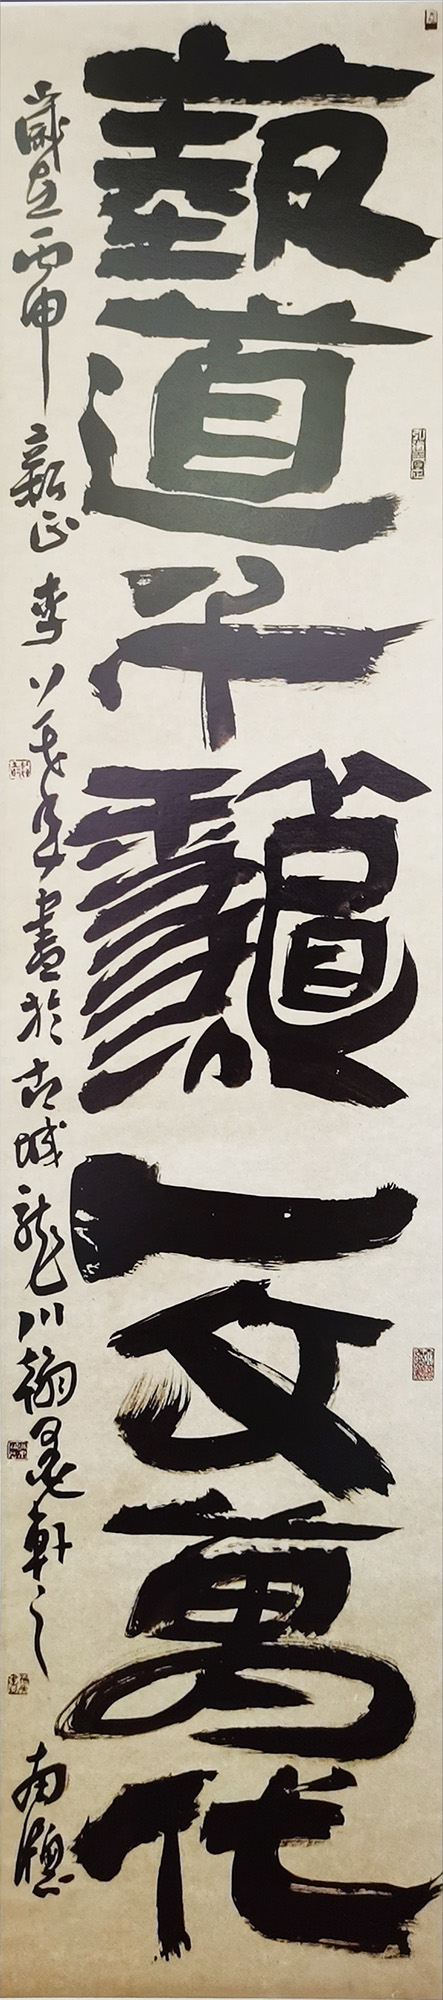 蓺道千龝一文萬代
歲在丙申新正李公年書於古城龍川翰墨軒之南牕